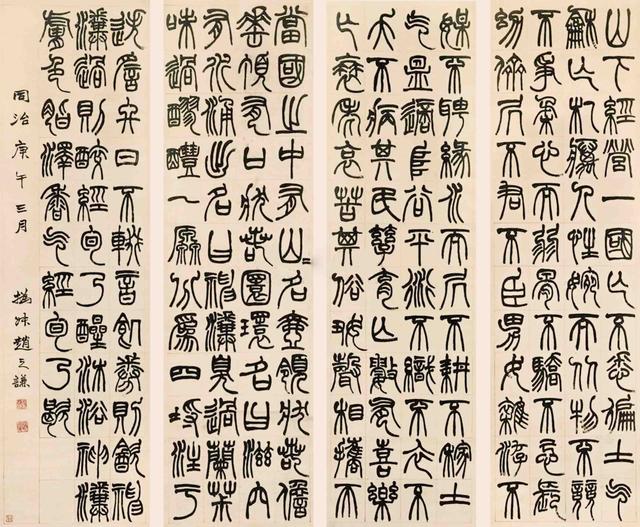 山下經營一國亡不悉徧土气
龢亡札癘人性婉而从物不競
不爭柔心而弱骨不驕不忌長
幼儕居不君不臣男女雜游不
媒不聘緣水而居不耕不稼土
气昷適不織不衣不
夭不病其民孳育亡數有喜樂
亡衰老哀苦其俗好聲相攜而
當國之中有山=名壺領狀若甔
甀頂有口狀若圜環名曰滋穴
有水涌出名曰神瀵臭過蘭茮
味過醪醴一原分爲四埒注于
迭䚻終日不輟音飢惓則飲神
瀵過則醉經旬乃醒沐浴神瀵
膚色脂澤香气經旬乃歇
同治庚午三月 撝叔趙之謙